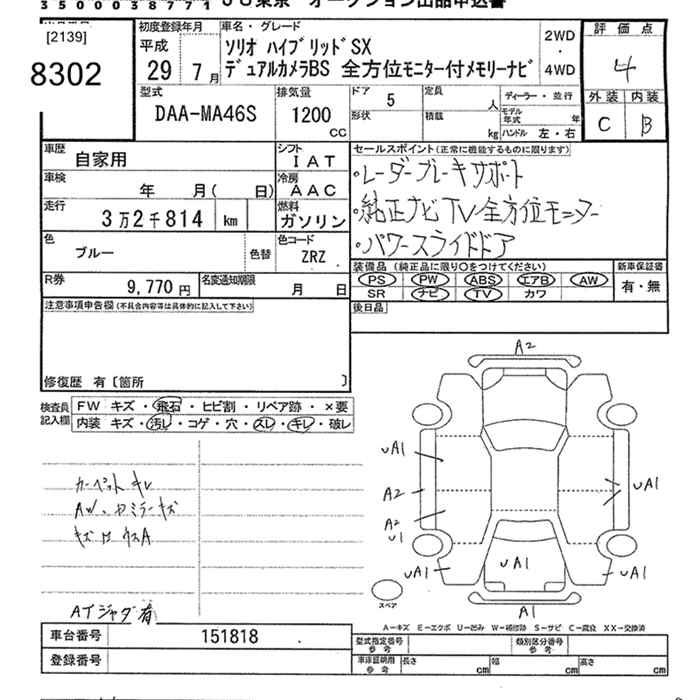 35000038771 JU東京 オークション出品申込書
[2139]
8302
初度登録年月
平成
29 7月
車名・グレード
ソリオ ハイブリッドSX
デュアルカメラBS 全方位モニター付メモリーナビ
2WD
・
4WD
評価点
4
外装 内装
C B
型式
DAA-MA46S
排気量
1200
CC
ドア 5
形状
定員 人
積載 kg
ディーラー・並行
モデル年式 年
ハンドル 左・右
車歴
自家用
シフト
IAT
車検
年 月( 日)
冷房
AAC
走行
3万2千814 km
燃料
ガソリン
色
ブルー
色替
色コード
ZRZ
R券
9,770円
名変通知期限
月 日
セールスポイント(正常に機能するものに限ります)
・レーダーブレーキサポート
・純正ナビTV全方位モニター
・パワースライドドア
装備品(純正品に限り○をつけてください)
PS PW ABS エアB AW
SR ナビ TV カワ
新車保証書
有・無
後日品
注意事項申告欄(不具合内容等は具体的に記入して下さい)
修復歴 有〔箇所 〕
検査員
記入欄
FW キズ・飛石・ヒビ割・リペア跡・×要
内装 キズ・汚レ・コゲ・穴・スレ・キレ・破レ
カーペットキレ
AW、ドミラーキズ
キズ凹ウスA
ATジャダ有
A2
UA1
A2
A2
U1
UA1
UA1
UA1
UA1
A1
スペア
A−キズ E−エクボ U−凹ミ W−補修跡 S−サビ C−腐食 XX−交換済
車台番号
151818
登録番号
型式指定番号
参考
類別区分番号
参考
車庫証明用
参考
長さ cm
幅 cm
高さ cm